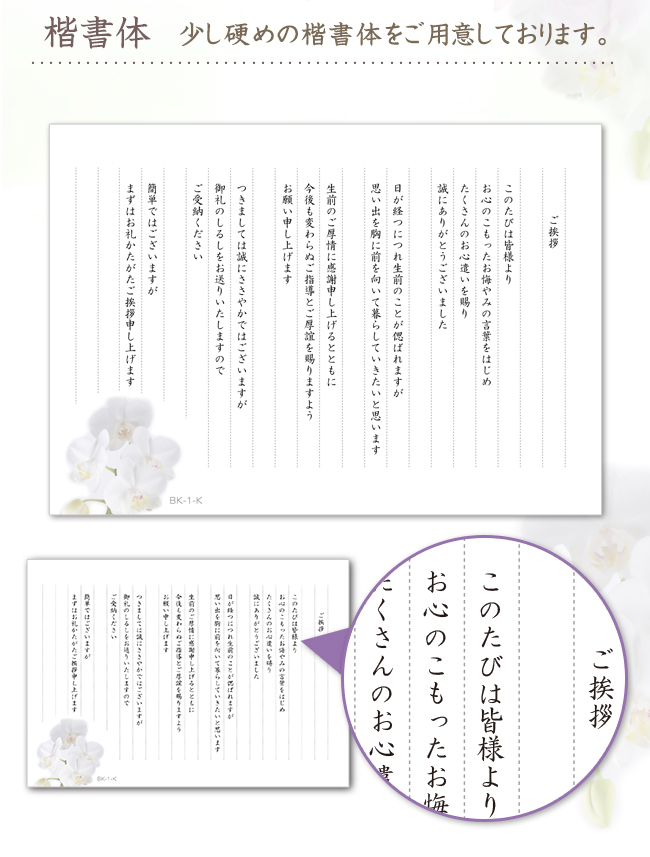 楷書体 少し硬めの楷書体をご用意しております。
ご挨拶
このたびは皆様より
お心のこもったお悔やみの言葉をはじめ
たくさんのお心遣いを賜り
誠にありがとうございました
日が経つにつれ生前のことが偲ばれますが
思い出を胸に前を向いて暮らしていきたいと思います
生前のご厚情に感謝申し上げるとともに
今後も変わらぬご指導とご厚誼を賜りますよう
お願い申し上げます
つきましては誠にささやかではございますが
御礼のしるしをお送りいたしますので
ご受納ください
簡単ではございますが
まずはお礼かたがたご挨拶申し上げます
BK-1-K
ご挨拶
このたびは皆様より
お心のこもったお悔やみの言葉をはじめ
たくさんのお心遣いを賜り
誠にありがとうございました
日が経つにつれ生前のことが偲ばれますが
思い出を胸に前を向いて暮らしていきたいと思います
生前のご厚情に感謝申し上げるとともに
今後も変わらぬご指導とご厚誼を賜りますよう
お願い申し上げます
つきましては誠にささやかではございますが
御礼のしるしをお送りいたしますので
ご受納ください
簡単ではございますが
まずはお礼かたがたご挨拶申し上げます
BK-1-K
ご挨拶
このたびは皆様より
お心のこもったお悔
たくさんのお心遣